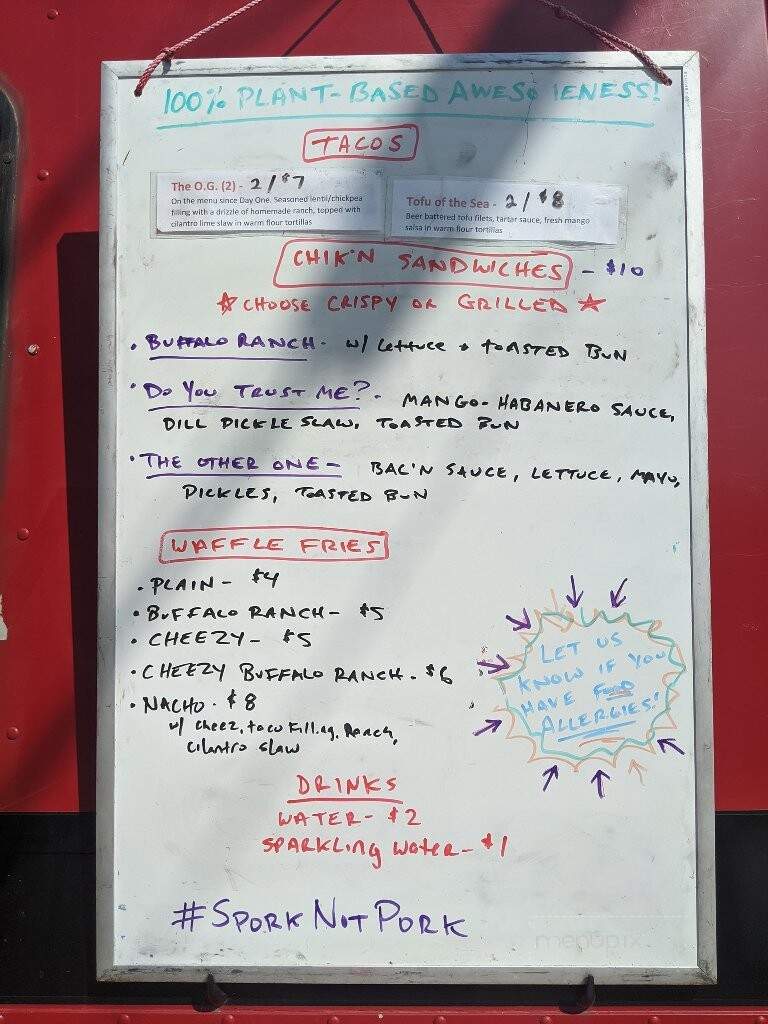 100% PLANT-BASED AWESOMENESS!
TACOS
The O.G. (2) - 2/$7
On the menu since Day One. Seasoned lentil/chickpea
filling with a drizzle of homemade ranch, topped with
cilantro lime slaw in warm flour tortillas
Tofu of the Sea - 2/$8
Beer battered tofu filets, tartar sauce, fresh mango
salsa in warm flour tortillas
CHIK'N SANDWICHES - $10
☆ CHOOSE CRISPY OR GRILLED ☆
• BUFFALO RANCH - w/ LETTUCE + TOASTED BUN
• DO YOU TRUST ME? - MANGO-HABANERO SAUCE,
DILL PICKLE SLAW, TOASTED BUN
• THE OTHER ONE - BAC'N SAUCE, LETTUCE, MAYO,
PICKLES, TOASTED BUN
WAFFLE FRIES
• PLAIN - $4
• BUFFALO RANCH - $5
• CHEEZY - $5
• CHEEZY BUFFALO RANCH - $6
• NACHO - $8
w/ cheez, taco filling, Ranch,
cilantro slaw
LET US
KNOW IF YOU
HAVE FOOD
ALLERGIES!
DRINKS
WATER - $2
SPARKLING WATER - $1
#SPORKNOTPORK
menupix